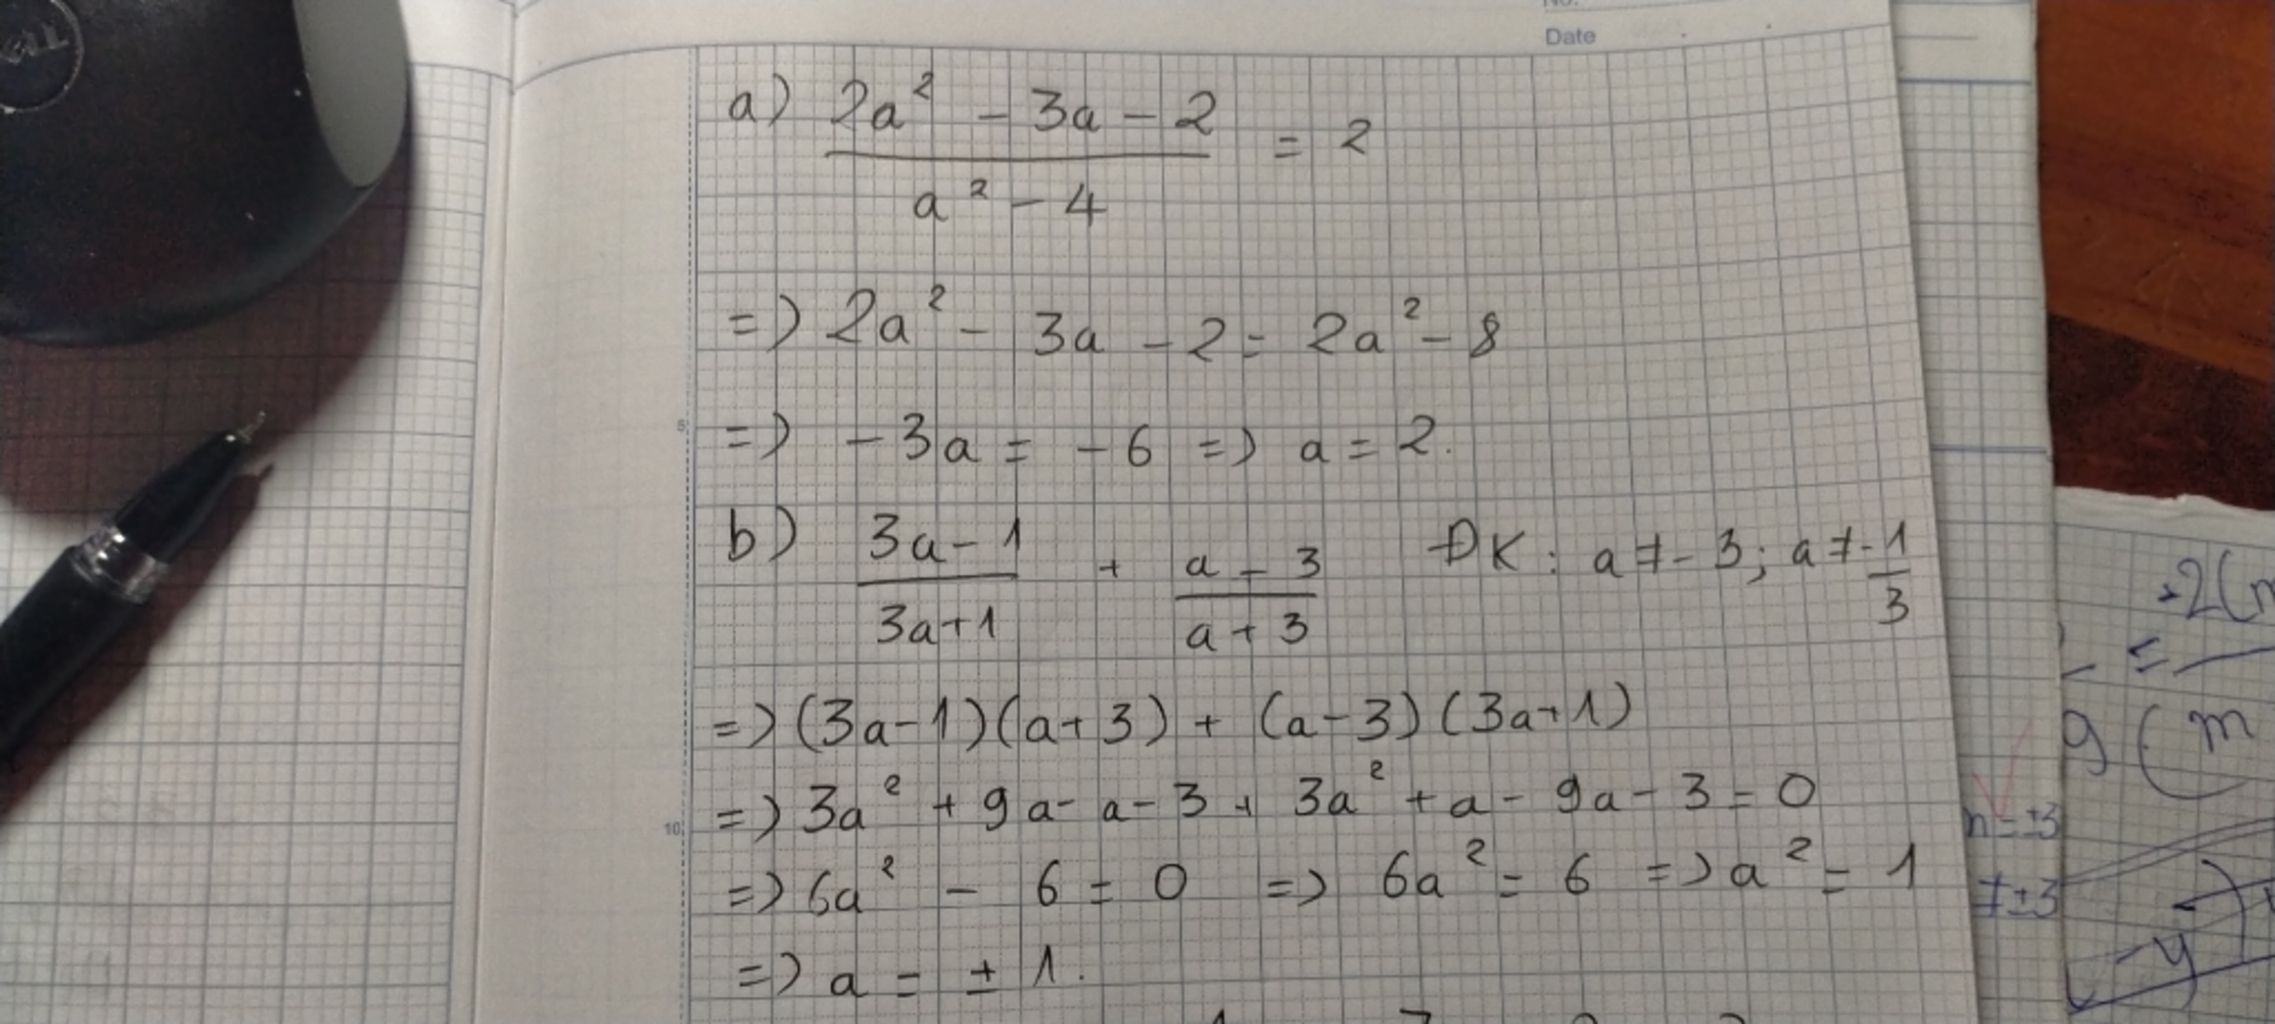 No.
Date
a) \frac{2a^2 - 3a - 2}{a^2 - 4} = 2
=> 2a^2 - 3a - 2 = 2a^2 - 8
5
=> -3a = -6 => a = 2.
b) \frac{3a-1}{3a+1} + \frac{a-3}{a+3} ĐK: a ≠ -3; a ≠ \frac{-1}{3}
=> (3a-1)(a+3) + (a-3)(3a+1)
=> 3a^2 + 9a - a - 3 + 3a^2 + a - 9a - 3 = 0
10
=> 6a^2 - 6 = 0 => 6a^2 = 6 => a^2 = 1
=> a = ± 1.
n = ±3
≠ ±3
9(m
-y)